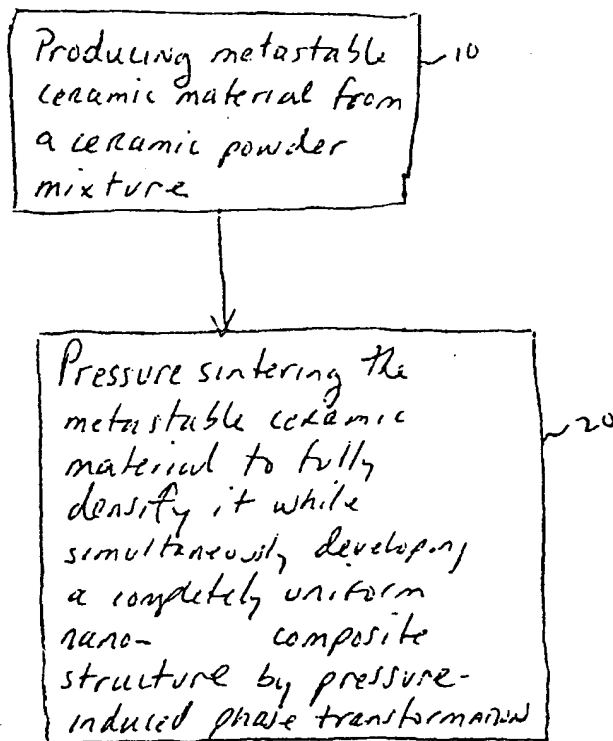 Producing metastable 10
ceramic material from
a ceramic powder
mixture
Pressure sintering the
metastable ceramic
material to fully 20
densify it while
simultaneously developing
a completely uniform
nano- composite
structure by pressure-
induced phase transformation